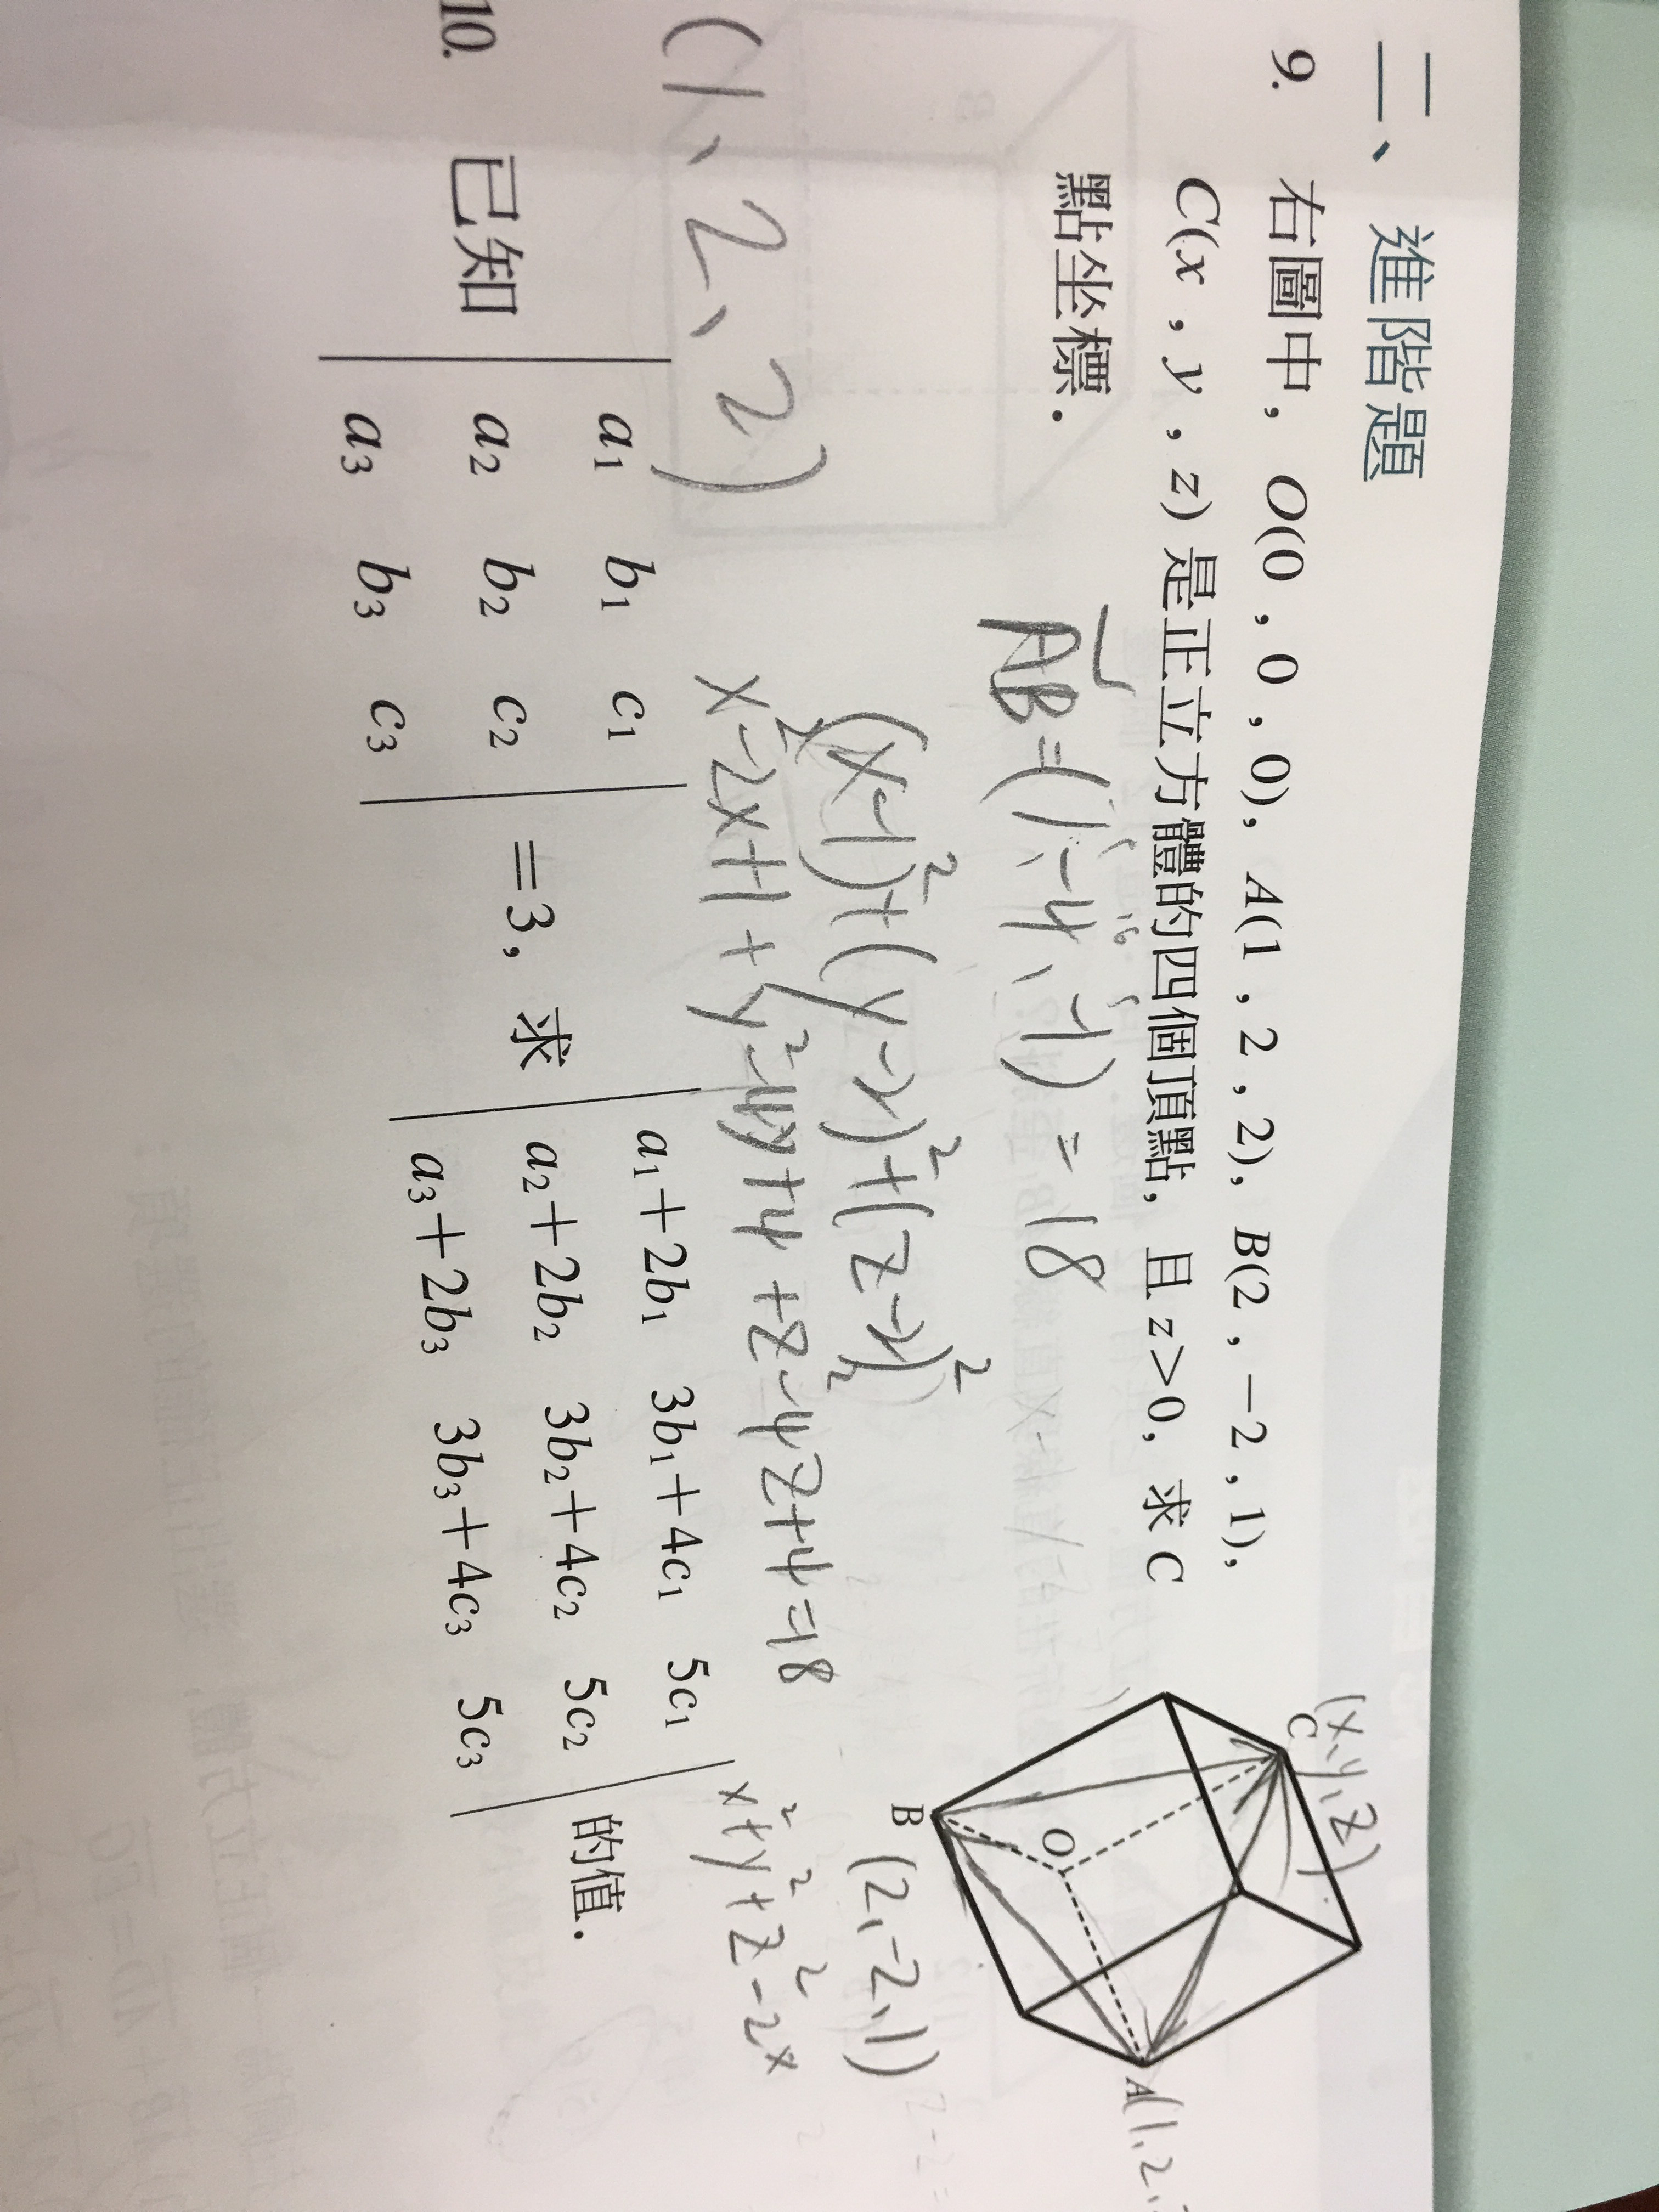 二、進階題
9. 右圖中，O(0 , 0 , 0)，A(1 , 2 , 2)，B(2 , −2 , 1)，
C(x , y , z) 是正立方體的四個頂點，且 z>0，求 C
點坐標．
(x,y,z)
C
O
B
A(1,2,
(2,-2,1)
AB=(1,-4,-1) = 18
1 16 1
(x-1)²+(y-2)²+(z-2)²
x²-2x+1+y²-4y+4+z²-4z+4=18
x²+y²+z²-2x
(1、2、2)
10. 已知
a₁ b₁ c₁
a₂ b₂ c₂
a₃ b₃ c₃
=3，求
a₁+2b₁ 3b₁+4c₁ 5c₁
a₂+2b₂ 3b₂+4c₂ 5c₂
a₃+2b₃ 3b₃+4c₃ 5c₃
的值．